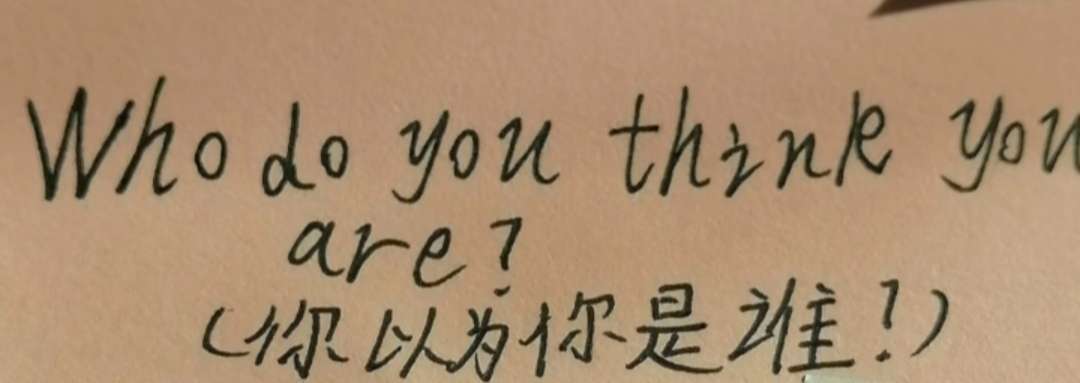 Who do you think you
are?
(你以为你是谁!)